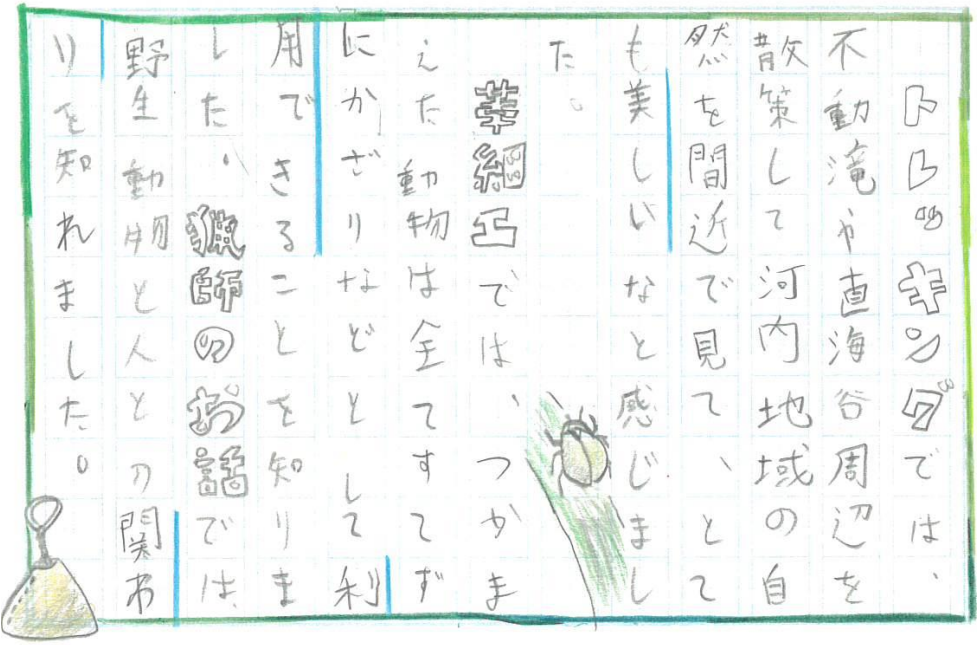 トレッキングでは、
不動滝や直海谷周辺を
散策して河内地域の自
然を間近で見て、とて
も美しいなと感じまし
た。
革細工では、つかま
えた動物は全てすてず
にかざりなどとして利
用できることを知りま
した。猟師のお話では、
野生動物と人との関わ
りを知れました。